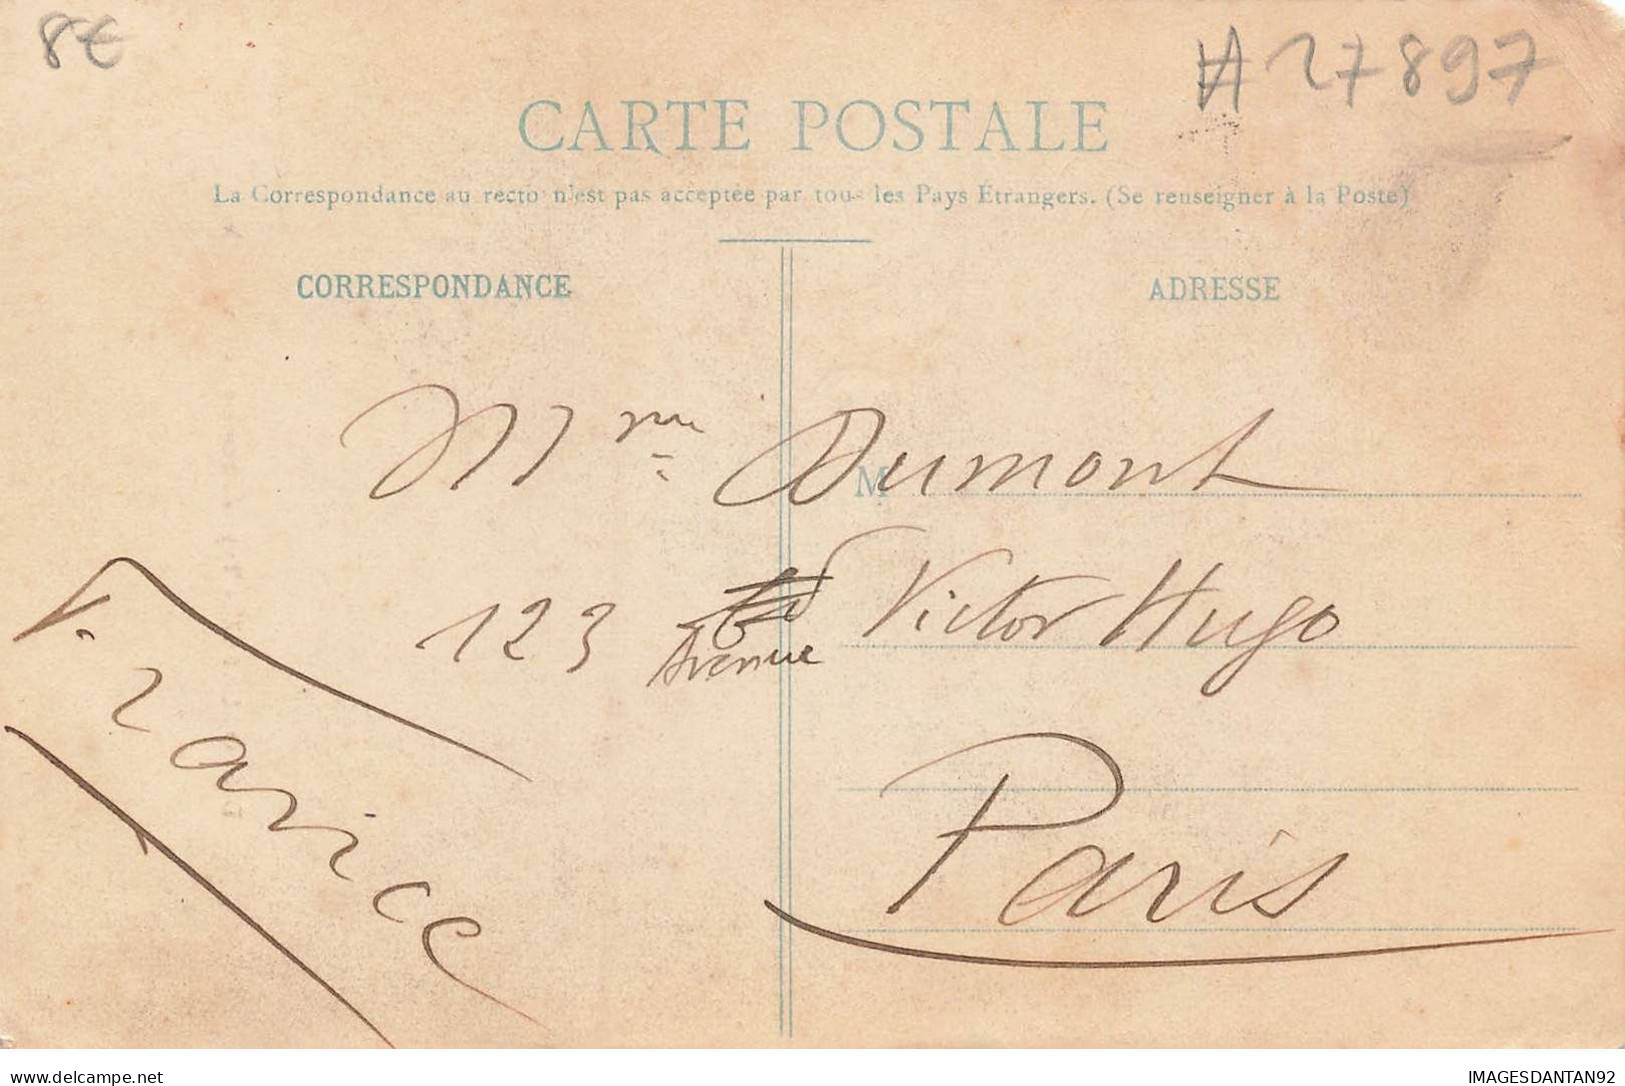 8€
#27897
CARTE POSTALE
La Correspondance au recto n'est pas acceptée par tous les Pays Étrangers. (Se renseigner à la Poste)
CORRESPONDANCE
ADRESSE
M
Mme Dumont
123 Avenue Victor Hugo
Paris
France
delcampe.net
IMAGESDANTAN92